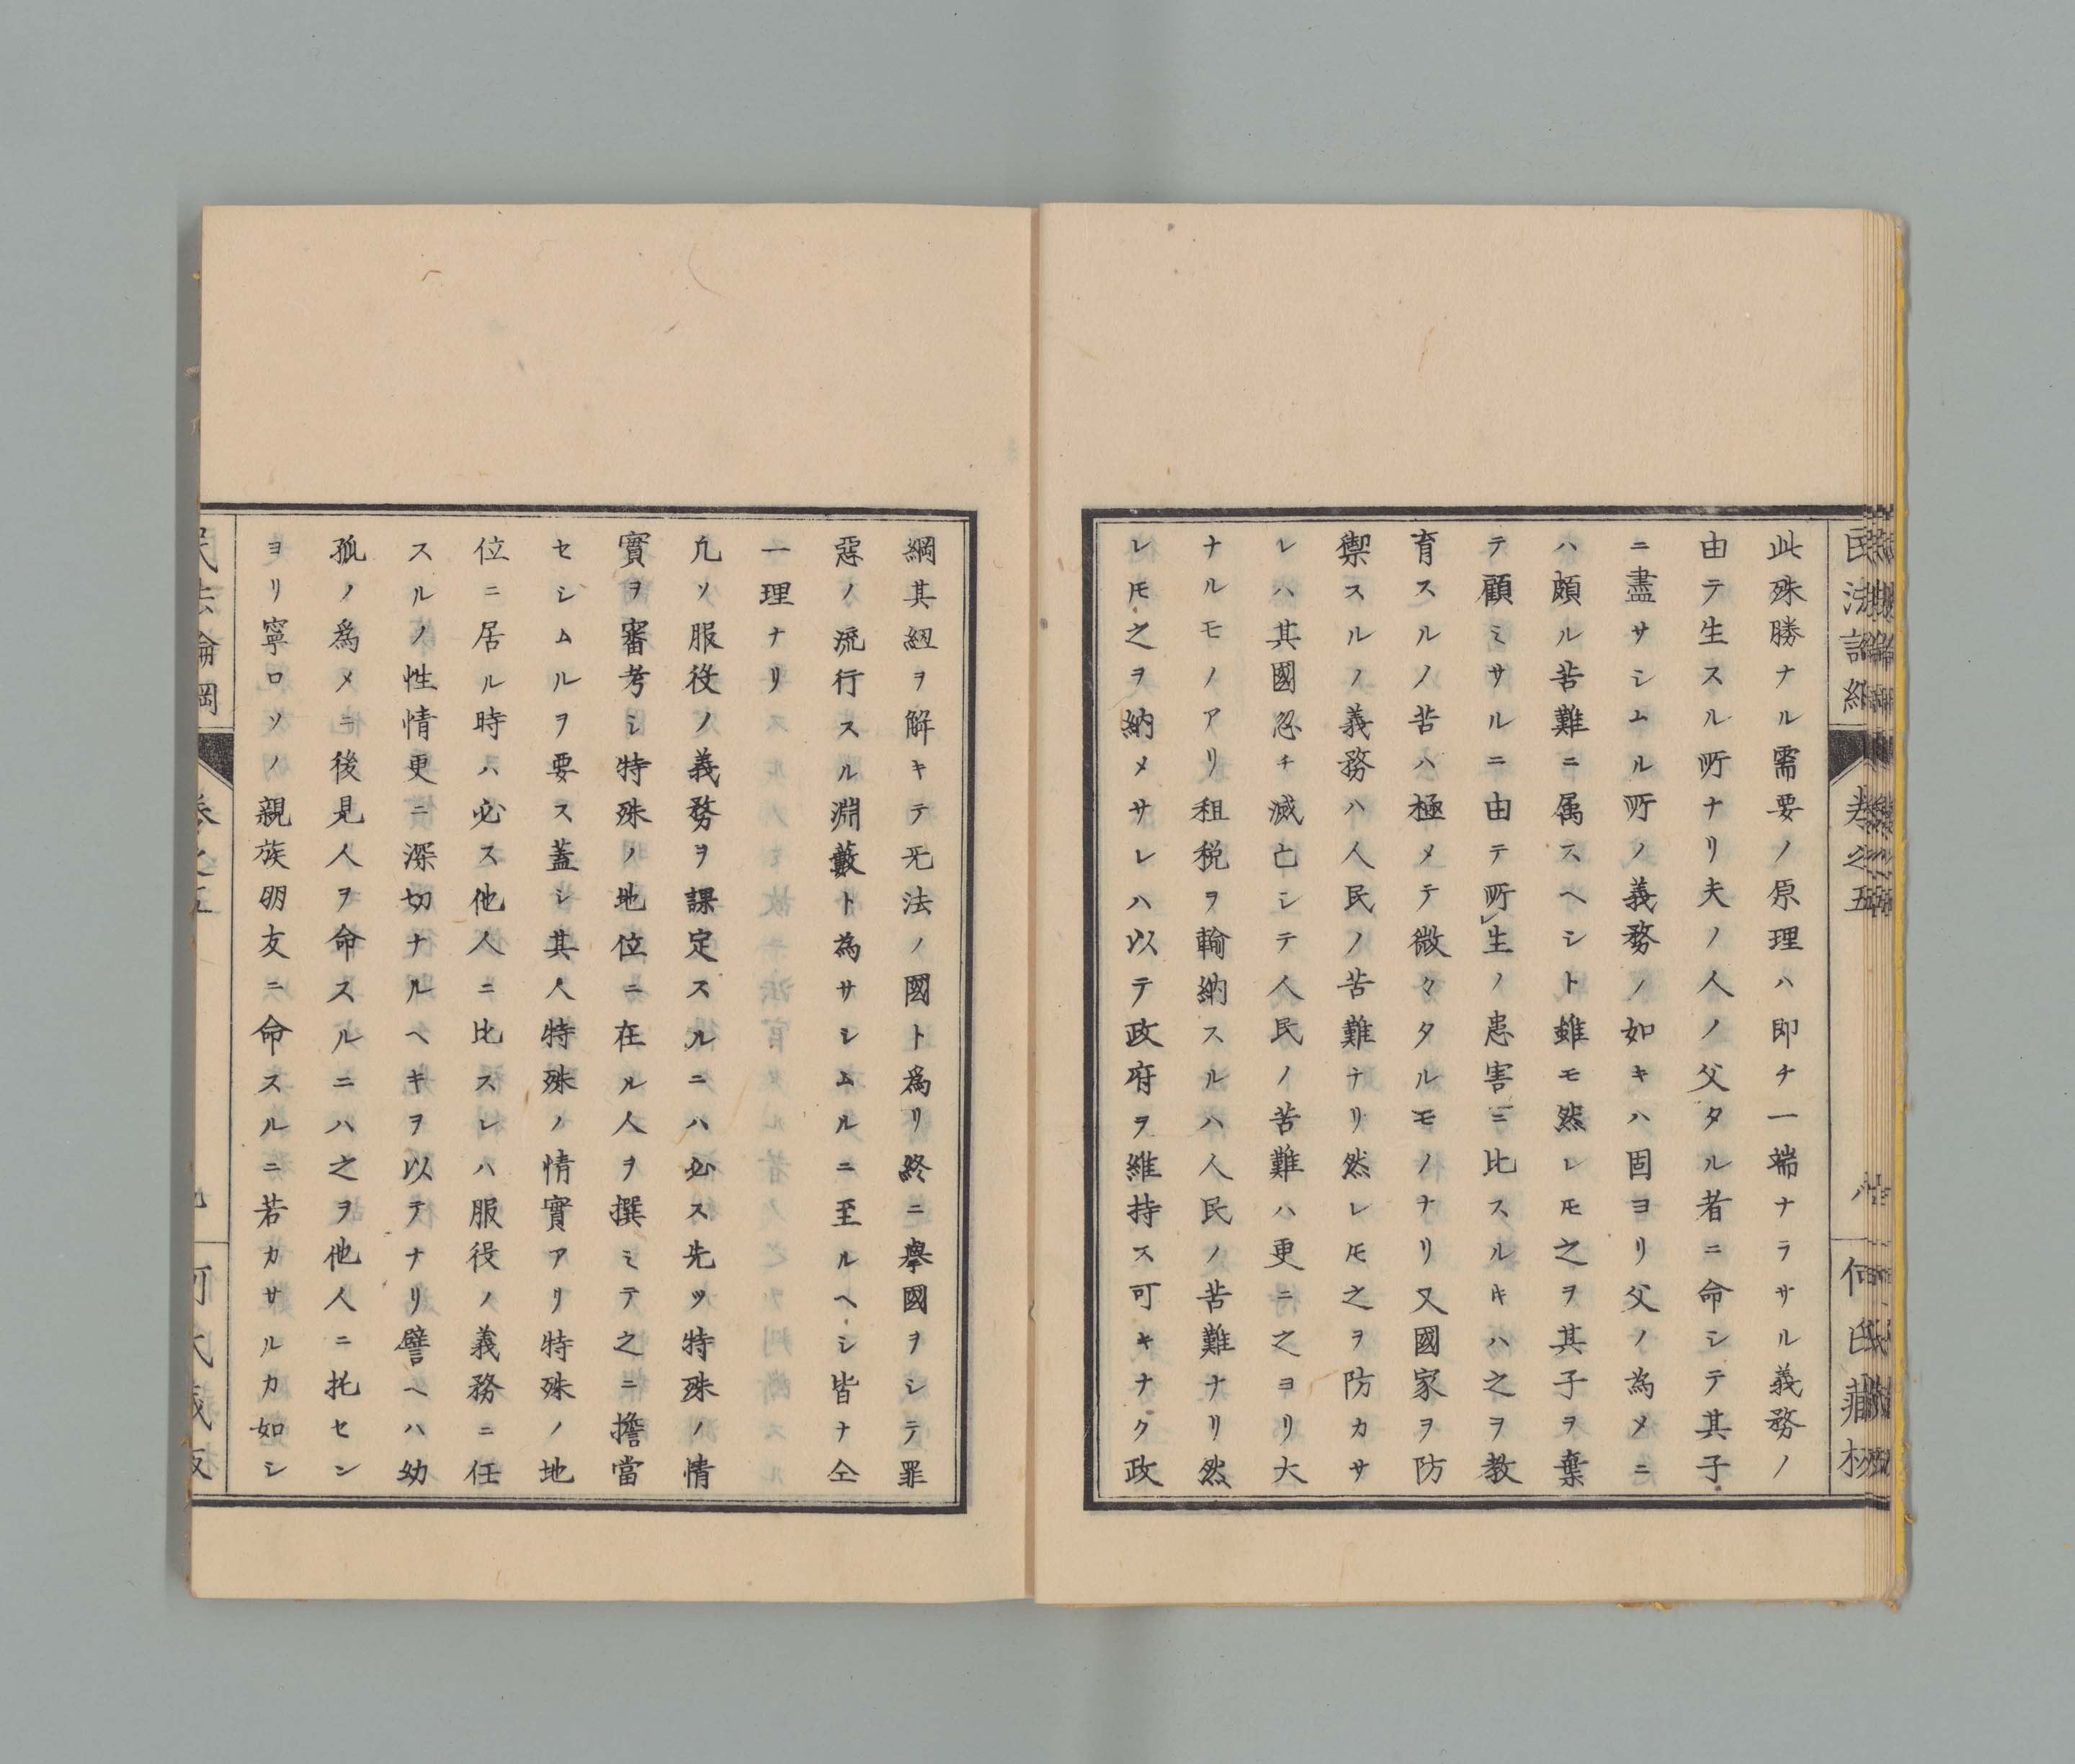 此殊勝ナル需要ノ原理ハ即チ一端ナラサル義務ノ
由テ生スル所ナリ夫ノ人ノ父タル者ニ命シテ其子
ニ盡サシムル所ノ義務ノ如キハ固ヨリ父ノ為メニ
ハ頗ル苦難ニ属スヘシト雖モ然レ𪜈之ヲ其子ヲ棄
テ顧ミサルニ由テ所生ノ患害ニ比スルキハ之ヲ教
育スルノ苦ハ極メテ微々タルモノナリ又國家ヲ防
禦スルノ義務ハ人民ノ苦難ナリ然レ𪜈之ヲ防カサ
レハ其國忽チ滅亡シテ人民ノ苦難ハ更ニ之ヨリ大
ナルモノアリ租税ヲ輸納スルハ人民ノ苦難ナリ然
レ𪜈之ヲ納メサレハ以テ政府ヲ維持ス可キナク政
綱其紐ヲ解キテ无法ノ國ト為リ終ニ擧國ヲシテ罪
惡ノ流行スル淵藪ト為サシムルニ至ルヘシ皆ナ仝
一理ナリ
凢ソ服役ノ義務ヲ課定スルニハ必ス先ツ特殊ノ情
實ヲ審考シ特殊ノ地位ニ在ル人ヲ撰ミテ之ニ擔當
セシムルヲ要ス蓋シ其人特殊ノ情實アリ特殊ノ地
位ニ居ル時ハ必ス他人ニ比スレハ服役ノ義務ニ任
スルノ性情更ニ深切ナルヘキヲ以テナリ譬ヘハ幼
孤ノ為メニ後見人ヲ命スルニハ之ヲ他人ニ托セン
ヨリ寧ロソノ親族朋友ニ命スルニ若カサルカ如シ
民法論綱 卷之五 何氏藏板